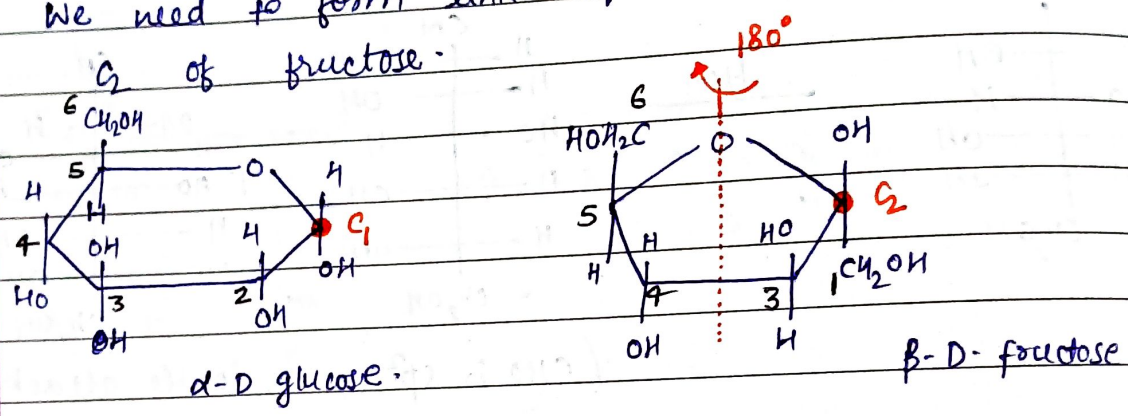 We need to form
C2 of fructose.
180°
6
CH2OH
5
O
H
H
4
H
OH
H
C1
HO
3
2
OH
OH
OH
α-D glucose.
6
HOH2C
O
OH
5
C2
H
HO
H
4
3
1CH2OH
OH
H
β-D- fructose